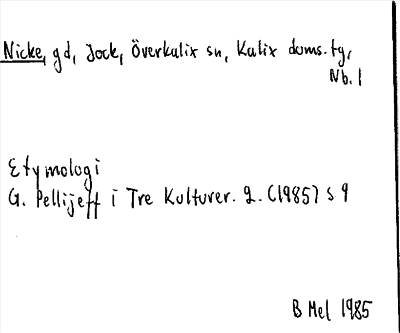 Nicke, gd, Jock, Överkalix sn, Kalix doms. tg,
Nb. l
Etymologi
G. Pellijeff i Tre Kulturer. 2. (1985) s 9
B Mel 1985